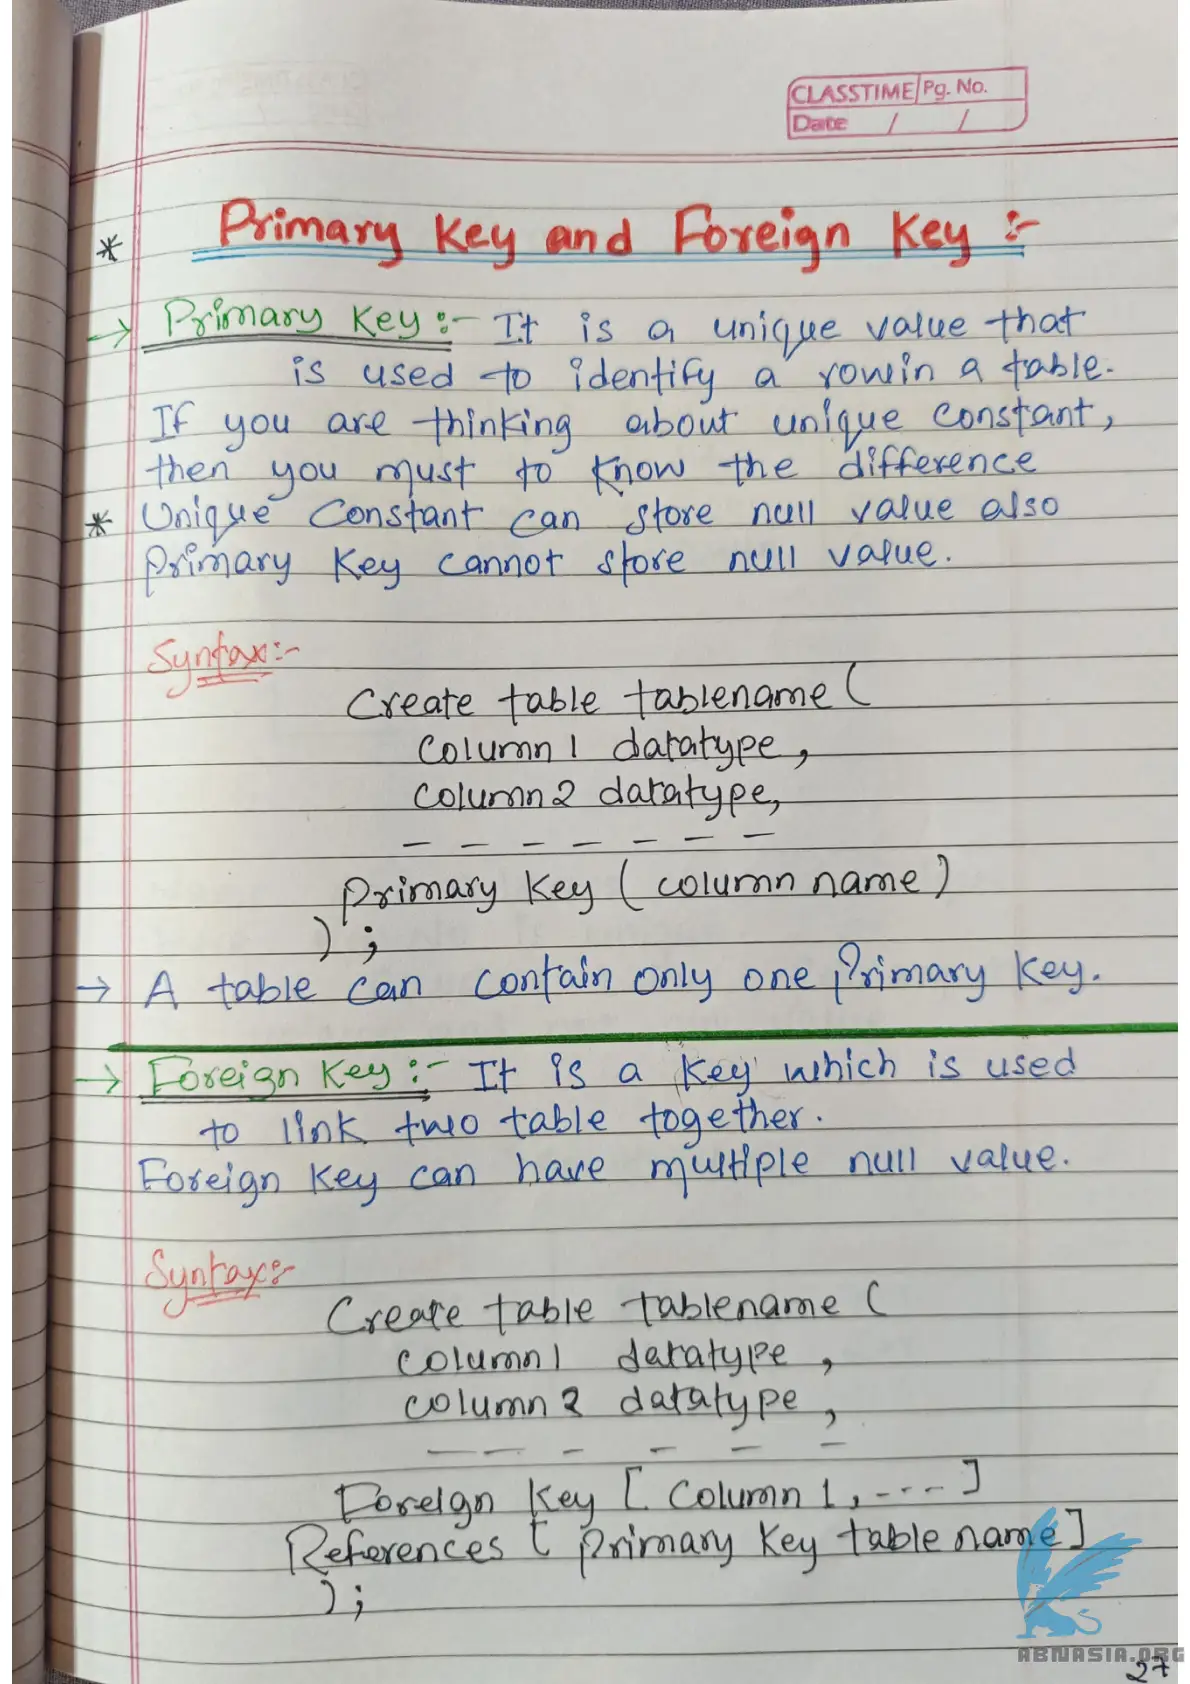 CLASSTIME Pg. No.
Date / /
* Primary Key and Foreign Key :-
→ Primary Key :- It is a unique value that
is used to identify a row in a table.
If you are thinking about unique constant,
then you must to know the difference
* Unique Constant can store null value also
Primary Key cannot store null value.
Syntax:-
Create table tablename (
column 1 datatype,
column 2 datatype,
- - - - - - -
Primary Key ( column name )
) ;
→ A table can contain only one Primary Key.
→ Foreign Key :- It is a Key which is used
to link two table together.
Foreign Key can have multiple null value.
Syntax:-
Create table tablename (
column 1 datatype ,
column 2 datatype ,
- - - - - -
Foreign Key [ Column 1, - - - - ]
References [ Primary Key table name ]
) ;
ABNASIA.ORG
27